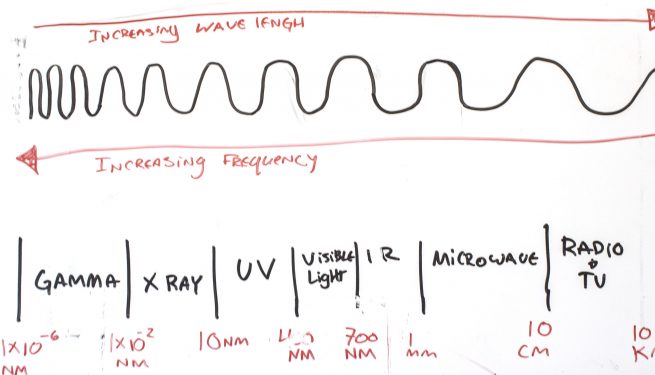 INCREASING WAVE LENGH
INCREASING FREQUENCY
GAMMA
X RAY
UV
VISIBLE
Light
IR
MICROWAVE
RADIO
+
TV
1X10⁻⁶
NM
1X10⁻²
NM
10NM
NM
700
NM
1
mm
10
CM
10